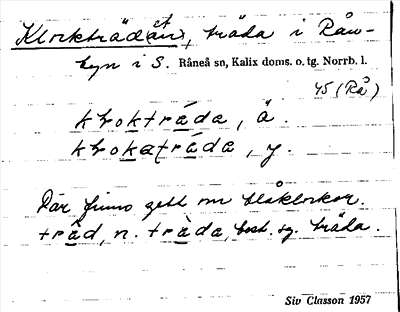 Klockträd(et, träda i Rån-
byn i S. Råneå sn, Kalix doms. o. tg. Norrb. l.
45 (Rå)
kḷoktrǡda, ä.
kḷokatrǡda, y.
Där finns gott om blåklockor.
trǡd, n. trǡda, best. sg. träda.
Siv Classon 1957